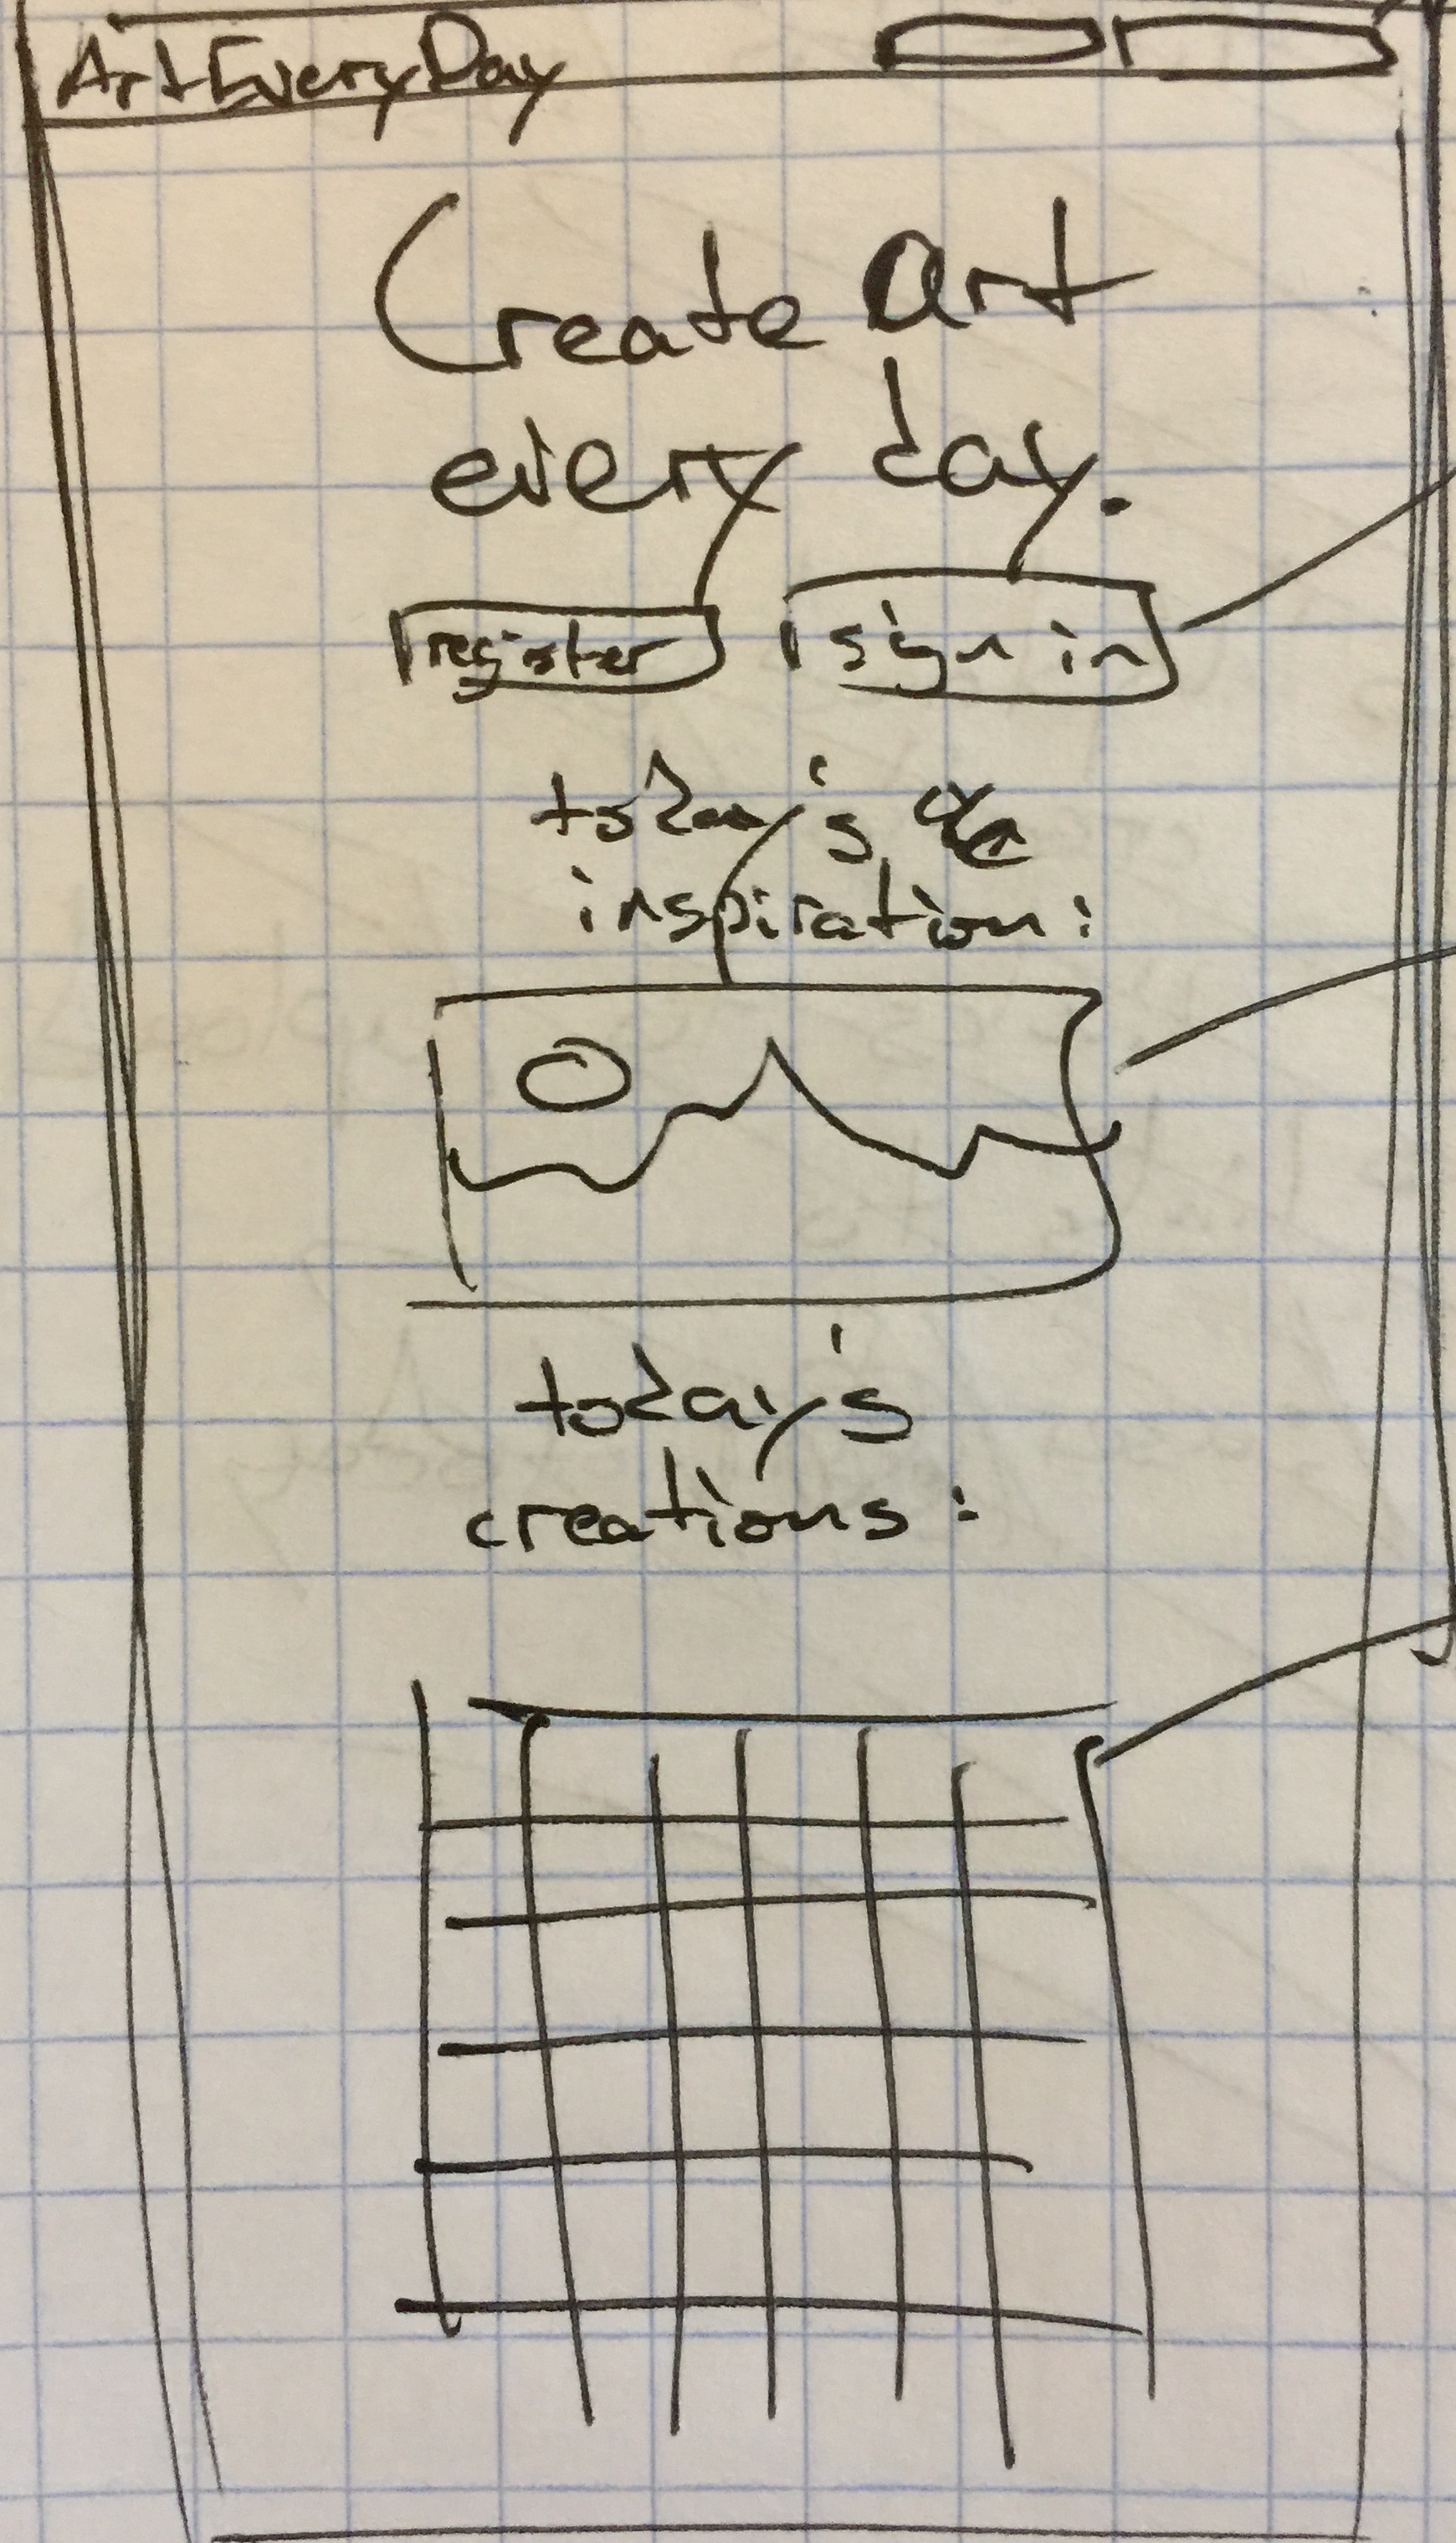 ArtEveryDay
Create Art
every day.
register
sign in
today's
inspiration:
today's
creations: